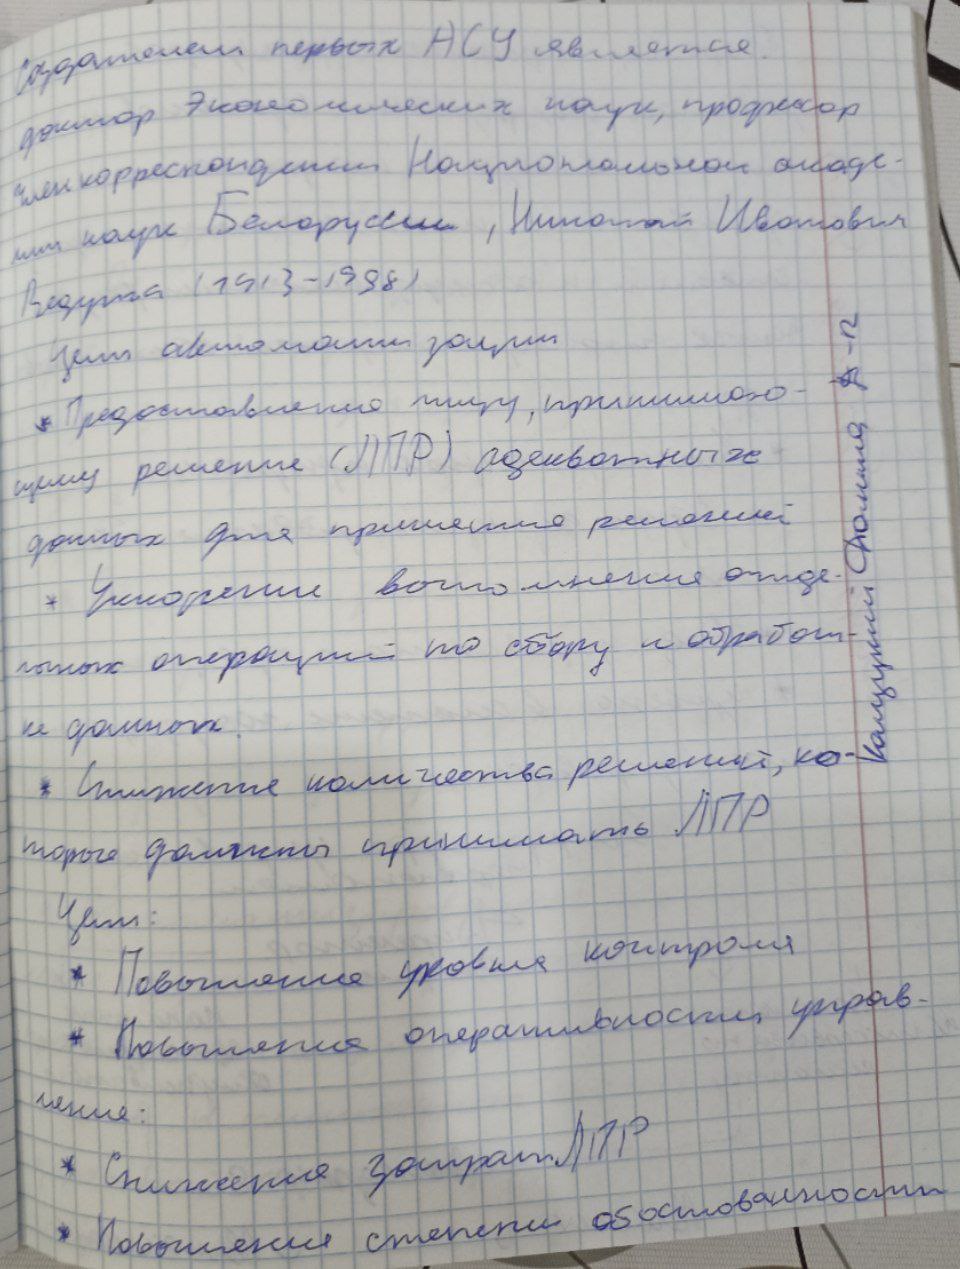 Создателем первых АСУ является:
доктор Экономических наук, профессор
член корреспондент Национальной акаде-
мии наук Белоруссии, Николай Иванович
Ведута (1913-1998)
Цели автоматизации
* Предоставление лицу, принимаю-
щему решение (ЛПР) адекватных
данных для принятия решений
* Ускорение выполнения отде-
льных операций по сбору и обработ-
ке данных.
* Снижение количества решений, ко-
торые должны принимать ЛПР
Цели:
* Повышение уровня контроля
* Повышение оперативности управ-
ление:
* Снижение затрат ЛПР
* Повышение степени обоснованности
Фамилия